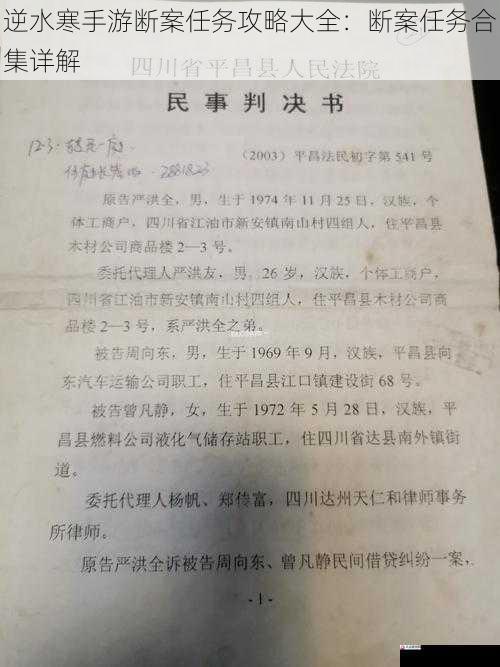 逆水寒手游断案任务攻略大全：断案任务合
集详解
四川省平昌县人民法院
民事判决书
（2003）平昌法民初字第541号
原告严洪全，男，生于1974年11月25日，汉族，个
体工商户，四川省江油市新安镇南山村四组人，住平昌县
木材公司商品楼2—3号。
委托代理人严洪友，男，26岁，汉族，个体工商户，
四川省江油市新安镇南山村四组人，住平昌县木材公司商
品楼2—3号，系严洪全之弟。
被告周向东，男，生于1969年9月，汉族，平昌县向
东汽车运输公司职工，住平昌县江口镇建设街68号。
被告曾凡静，女，生于1972年5月28日，汉族，平
昌县燃料公司液化气储存站职工，住四川省达县南外镇街
道。
委托代理人杨帆、郑传富，四川达州天仁和律师事务
所律师。
原告严洪全诉被告周向东、曾凡静民间借贷纠纷一案，
-1-